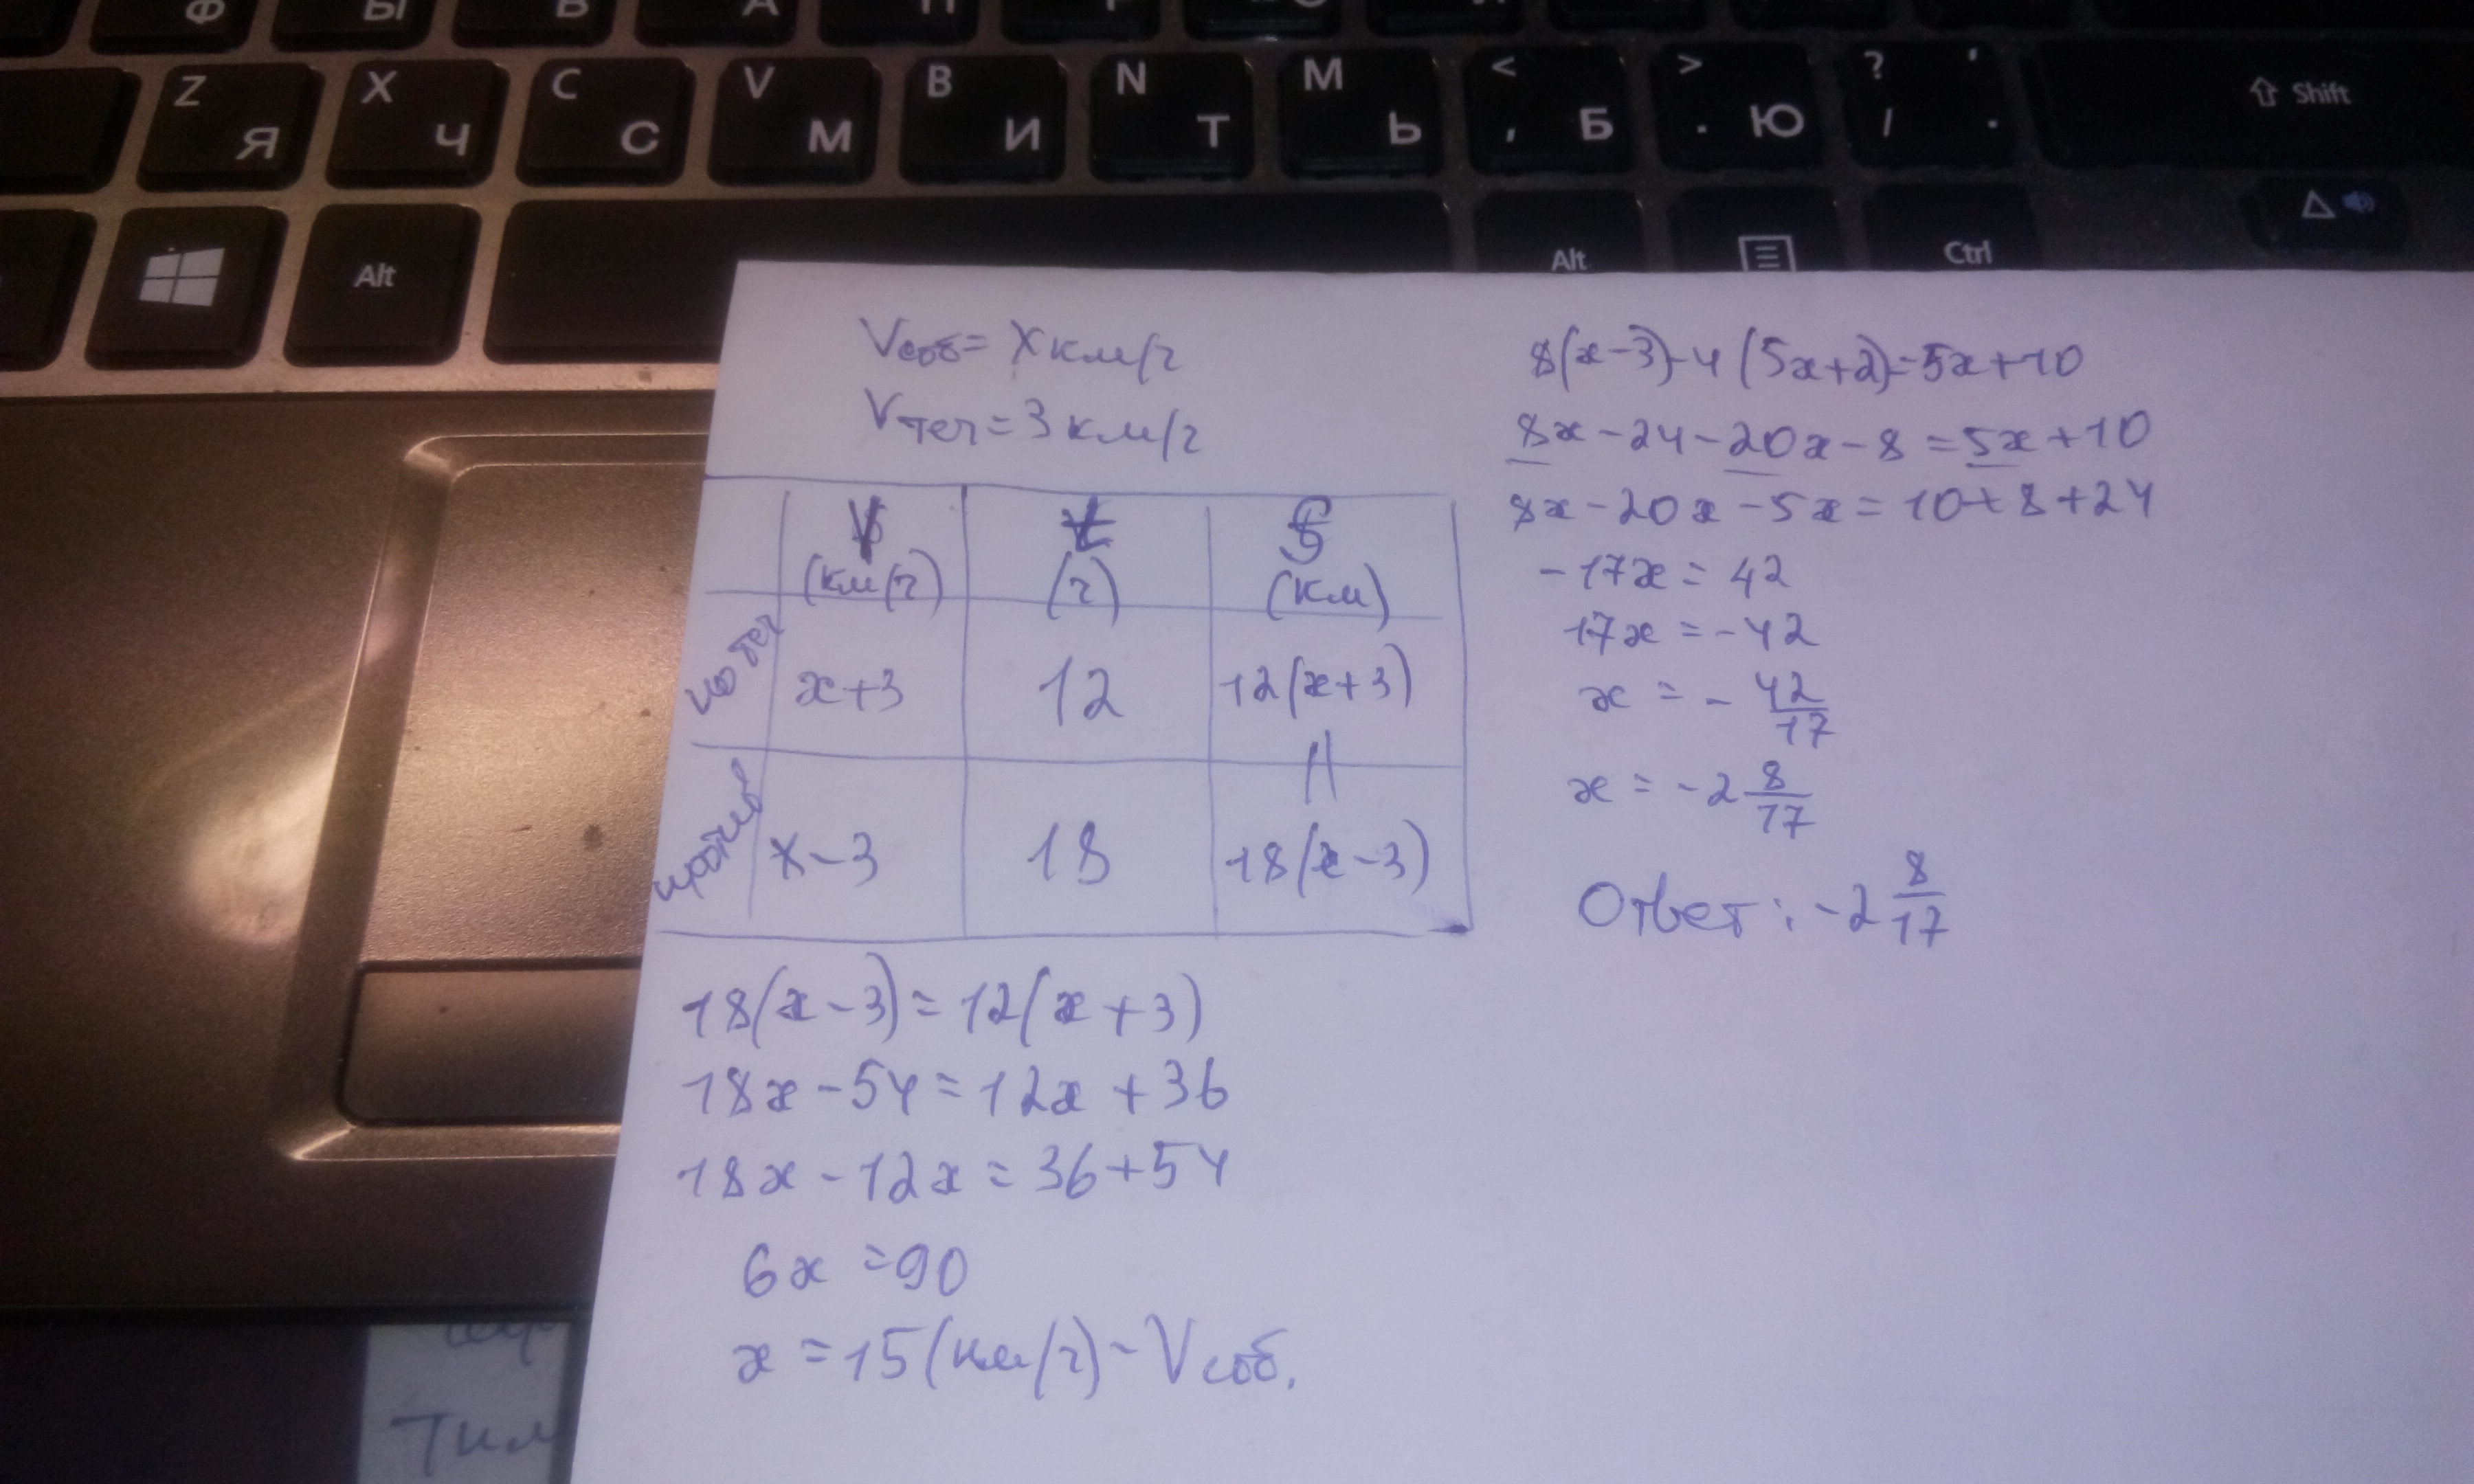 Ф Ы В А П Р
Z Я X Ч C С V М B И N Т M Ь < , Б > . Ю ? / ' . ⇧ Shift
Alt Alt Ctrl
Vсоб = X км/ч
Vтеч = 3 км/ч
V t S
(км/ч) (ч) (км)
по теч x+3 12 12(x+3)
против x-3 18 18(x-3)
18(x-3)=12(x+3)
18x-54=12x+36
18x-12x=36+54
6x=90
x=15(км/ч)-Vсоб.
8(x-3)-4(5x+2)=5x+10
8x-24-20x-8=5x+10
8x-20x-5x=10+8+24
-17x=42
17x=-42
x=-42/17
x=-2 8/17
Ответ: -2 8/17